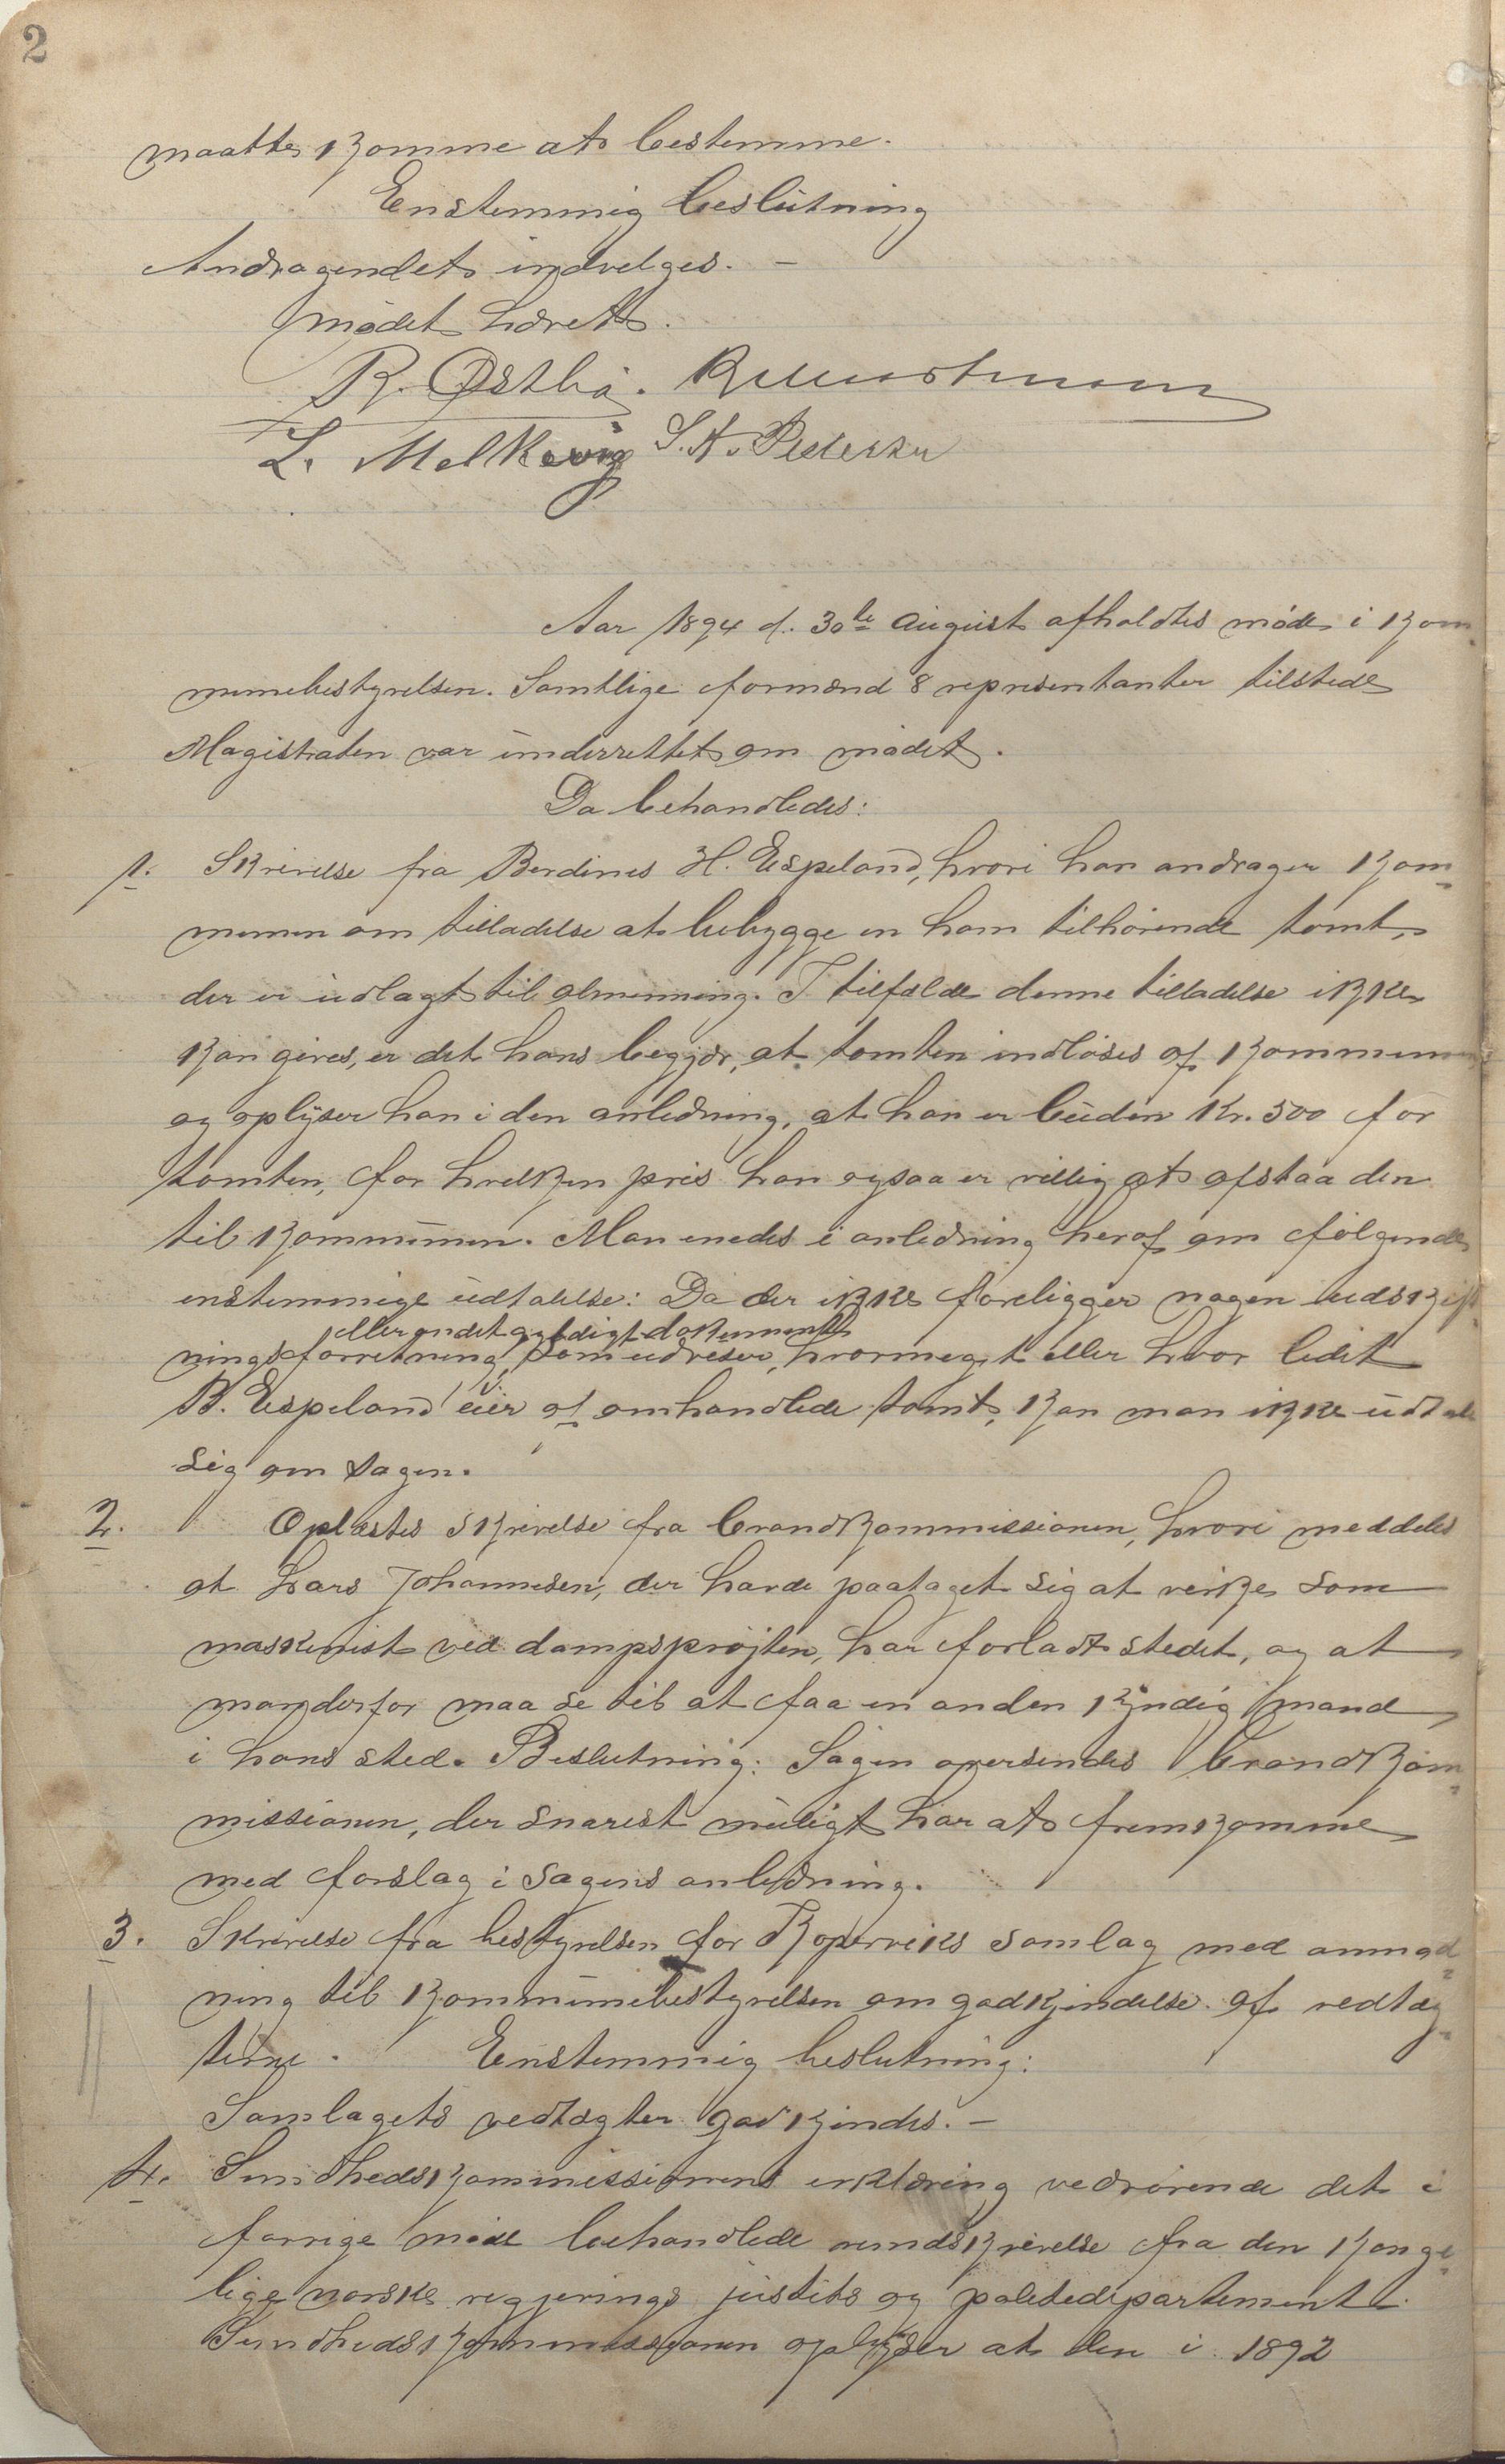 2
maatte komme at bestemme.
Enstemmig beslutning
Andragendet indvelges. –
Mødet hævet.
R. Østbø.
L. Melkevig S. A. Pedersen
Aar 1894 d. 30te august afholdtes møde i kom-
munebestyrelsen. Samtlige formænd 8 representanter tilstede
Magistraten var underrettet om mødet.
Da behandledes:
1. Skrivelse fra Berdines H. Espeland, hvori han andrager kom-
munen om tilladelse at bebygge en ham tilhørende tomt,
der er udlagt til almenning. I tilfælde denne tilladelse ikke
kan gives, er det hans begjær, at tomten indløses af kommunen
og oplyser han i den anledning, at han er buden Kr. 500 for
tomten, for hvilken pris han ogsaa er villig at afstaa den
til kommunen. Man enedes i anledning heraf om følgende
enstemmige udtalelse: Da der ikke foreligger nogen udskift-
eller andet gyldigt dokument
ningsforretning, som udviser, hvormeget eller hvor lidet
B. Espeland eier af omhandlede tomt, kan man ikke udtale
sig om sagen.
2. Oplæstes skrivelse fra brandkommissionen, hvori meddeles
at Lars Johannesen, der havde paataget sig at virke som
maskinist ved dampsprøjten, har forladt stedet, og at
man derfor maa se til at faa en anden kyndig mand
i hans sted. Beslutning: Sagen oversendes brandkom-
missionen, der snarest muligt har at fremkomme
med forslag i sagens anledning.
3. Skrivelse fra bestyrelsen for Kopervik's samlag med anmod-
ning til kommunebestyrelsen om godkjendelse af vedtæg-
terne. Enstemmig beslutning:
Samlagets vedtægter godkjendes. –
4. Sundhedskommissionens erklæring vedrørende det i
forrige møde behandlede rundskrivelse fra den konge-
lige norske regjerings justits og politidepartement.
Sundhedskommissionen oplyser at den i 1892